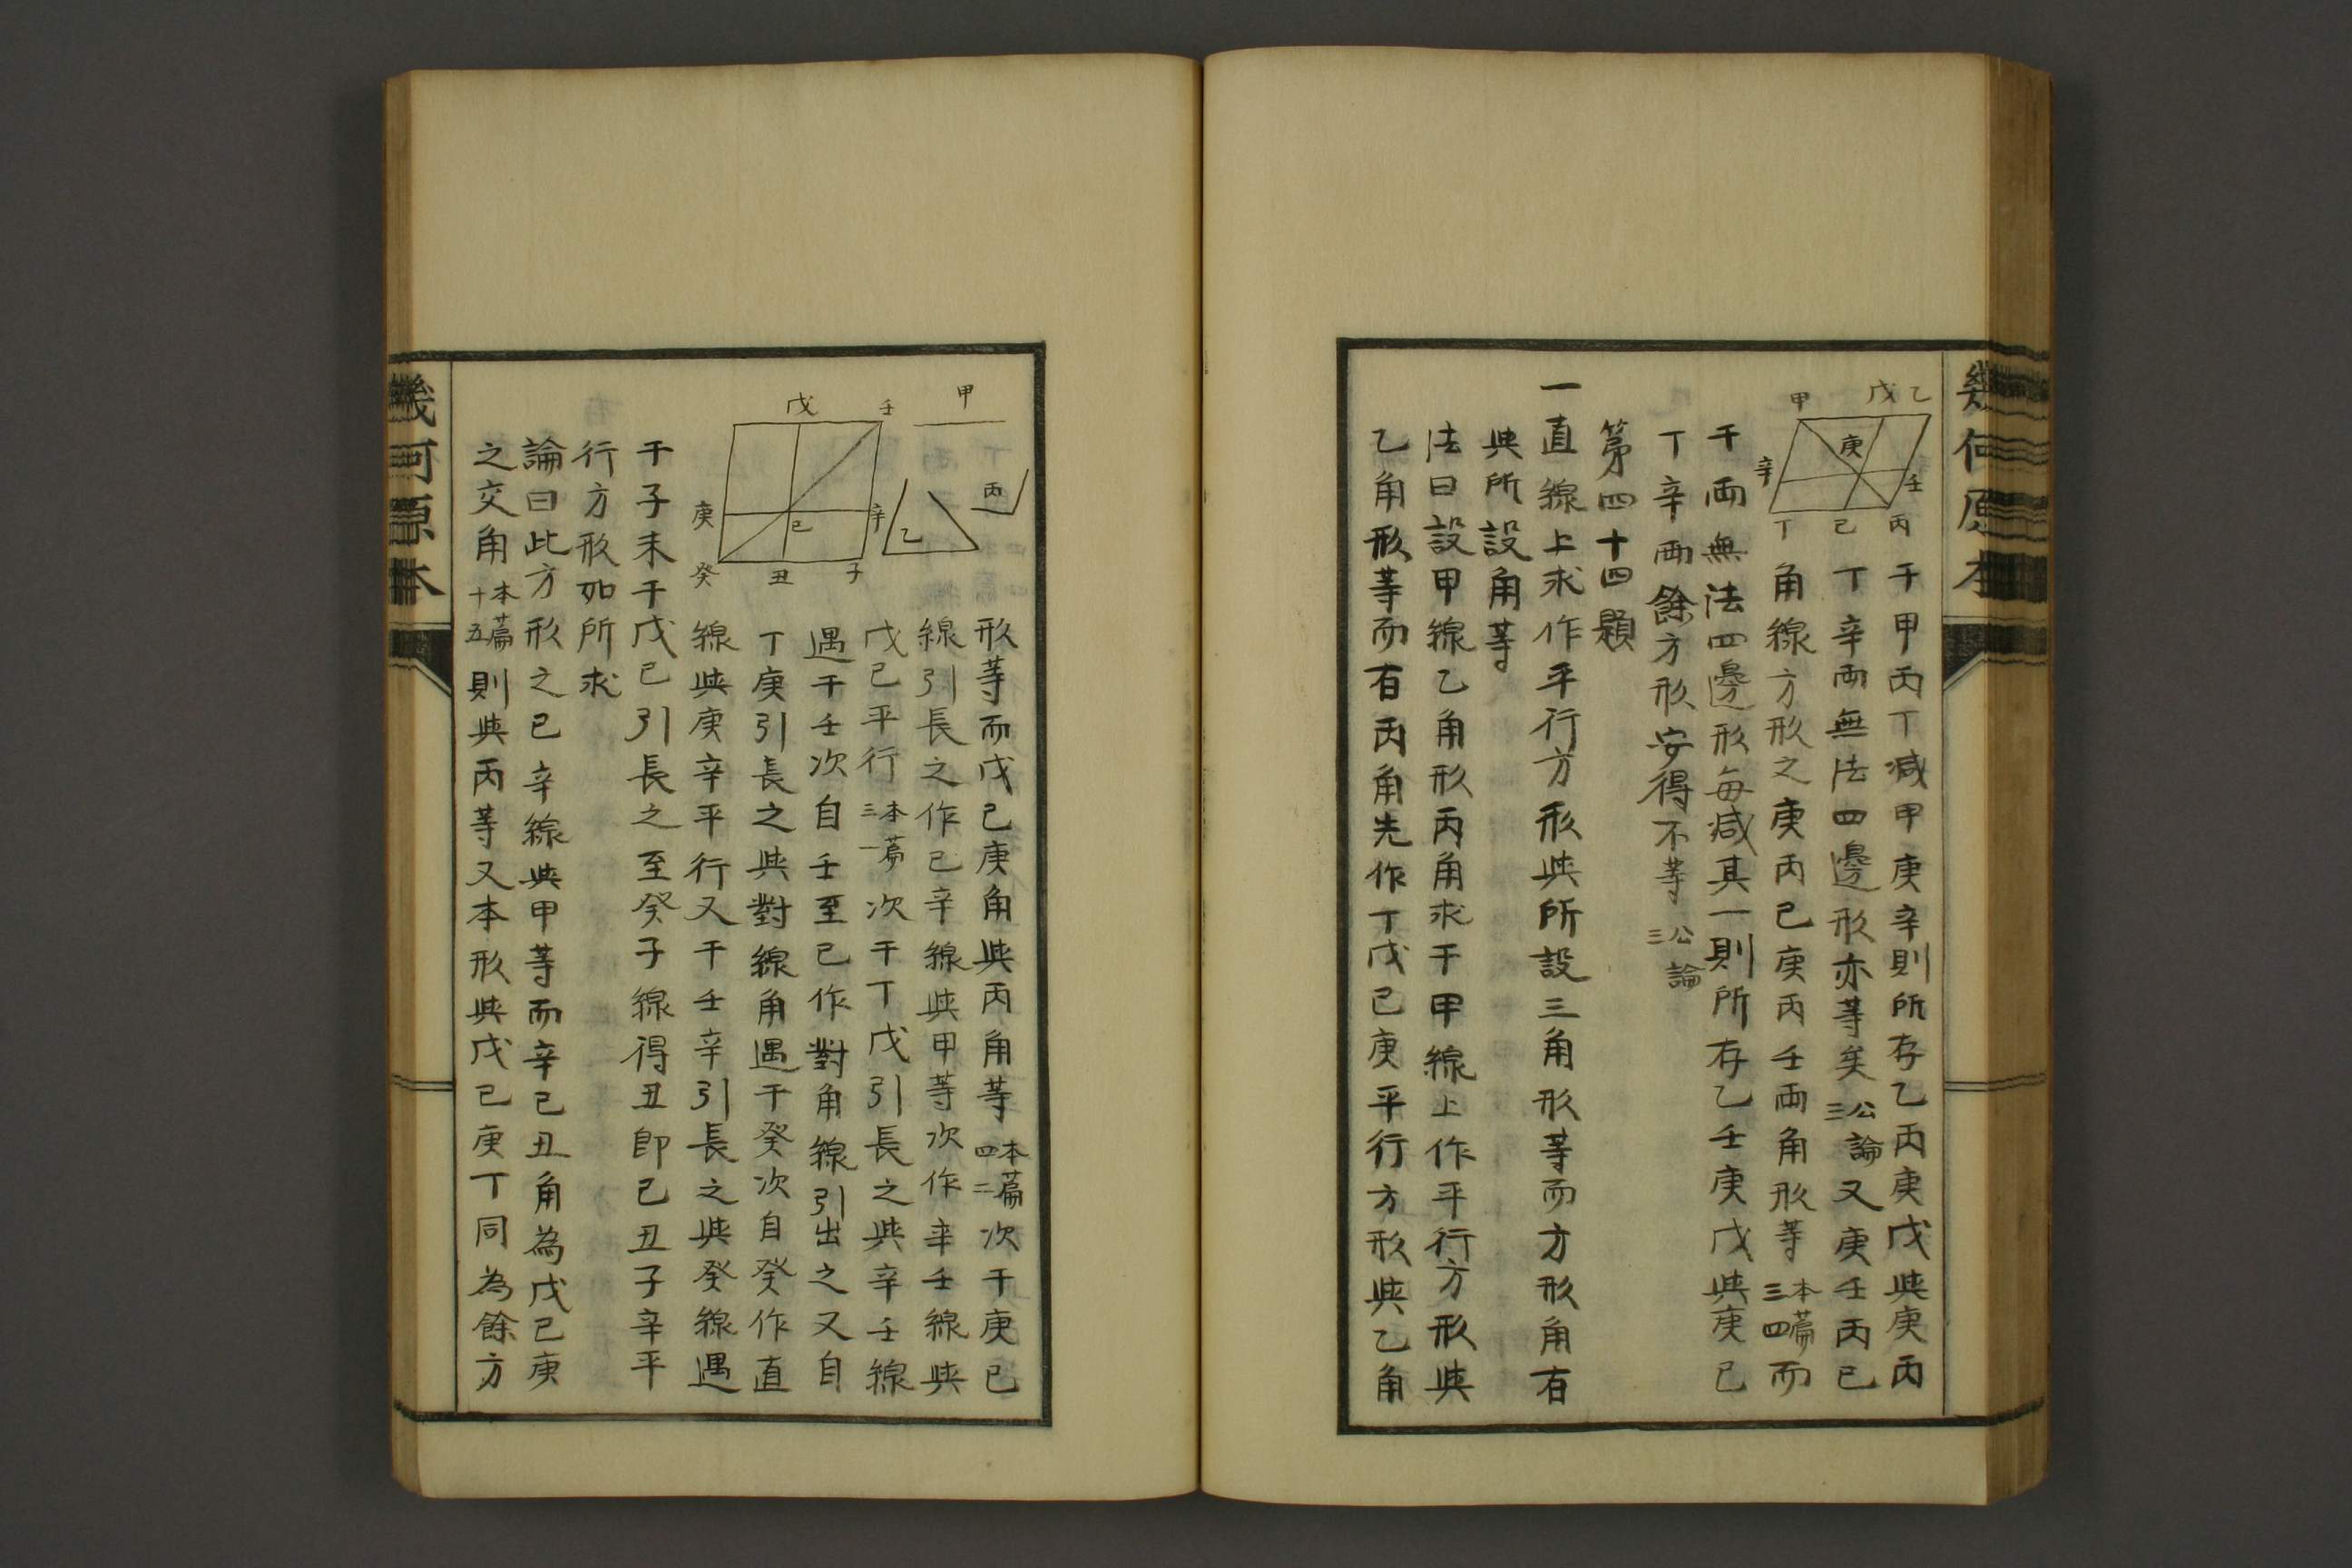 幾何原本
甲
戊
乙
庚
辛
壬
丁
己
丙
于甲丙丁减甲庚辛則所存乙丙庚戊與庚丙
丁辛兩無法四邊形亦等矣公論三又庚壬丙己
角線方形之庚丙己庚丙壬兩角形等本篇三四而
于兩無法四邊形每减其一則所存乙壬庚戊與庚己
丁辛兩餘方形安得不等公論三
第四十四題
一直線上求作平行方形與所設三角形等而方形角有
與所設角等
法曰設甲線乙角形丙角求于甲線上作平行方形與
乙角形等而有丙角先作丁戊己庚平行方形與乙角
甲
丙
乙
戊
壬
庚
己
辛
癸
丑
子
形等而戊己庚角與丙角等本篇四二次于庚己
線引長之作己辛線與甲等次作辛壬線與
戊己平行本篇三一次于丁戊引長之與辛壬線
遇于壬次自壬至己作對角線引出之又自
丁庚引長之與對線角遇于癸次自癸作直
線與庚辛平行又于壬辛引長之與癸線遇
于子末于戊己引長之至癸子線得丑即己丑子辛平
行方形如所求
論曰此方形之己辛線與甲等而辛己丑角為戊己庚
之交角本篇十五則與丙等又本形與戊己庚丁同為餘方
幾何原本